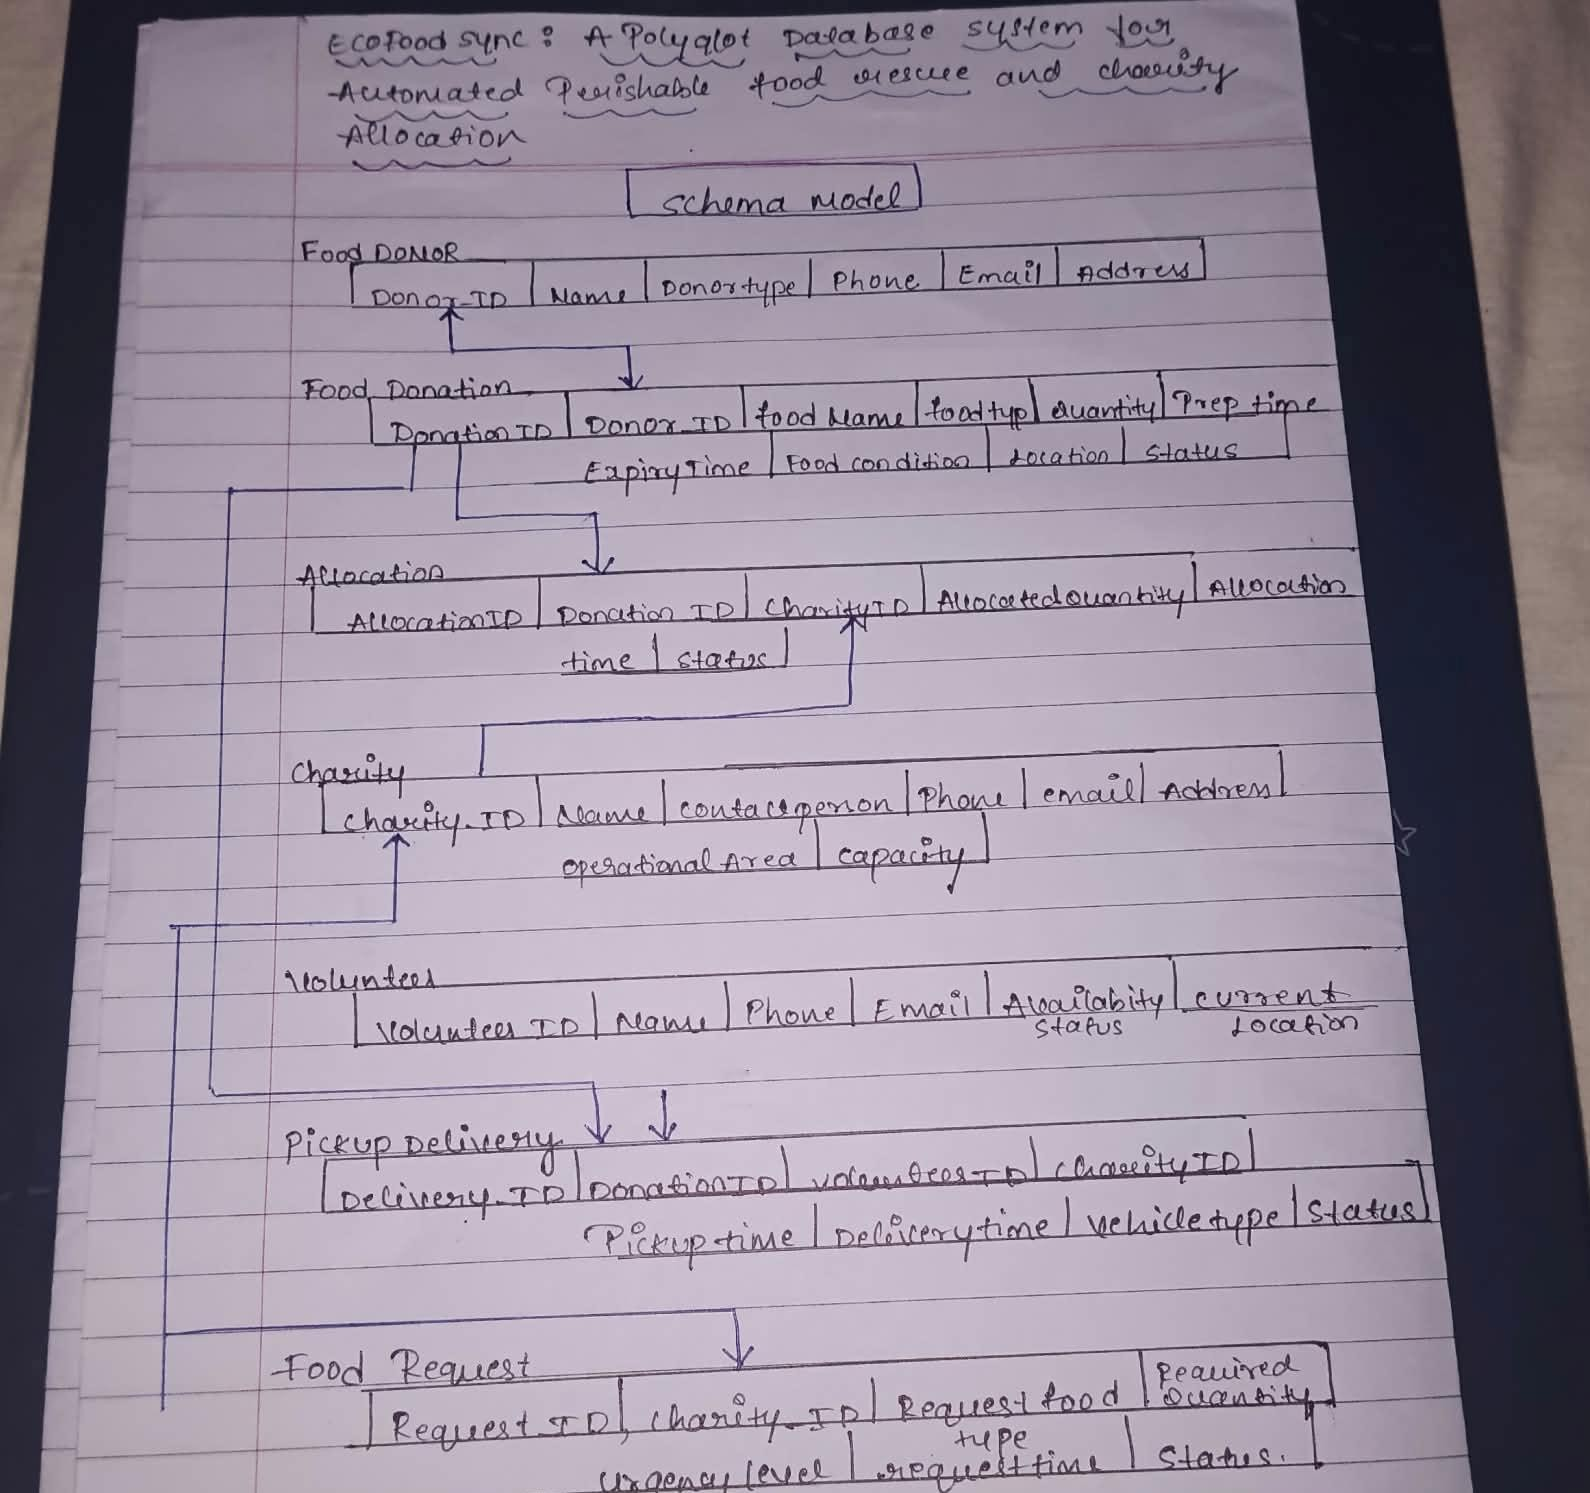 EcoFood sync: A Polyglot Database system for
Automated Perishable food rescue and charity
Allocation
Schema model
Food DONOR
Donor-ID | Name | Donor type | Phone | Email | Address
Food Donation
Donation ID | Donor ID | food Name | food typ | Quantity | Prep time
Expiry Time | Food condition | Location | Status
Allocation
Allocation ID | Donation ID | Charity ID | Allocated Quantity | Allocation
time | status
Charity
Charity-ID | Name | contact person | Phone | email | Address
operational Area | capacity
Volunteer
Volunteer ID | Name | Phone | Email | Availabity | current
status Location
Pickup Delivery
Delivery-ID | Donation ID | volunteer ID | Charity ID
Pickup time | Delivery time | vehicle type | Status
Food Request
Request ID | Charity-ID | Request food | Required
type Quantity
urgency level | request time | Status.